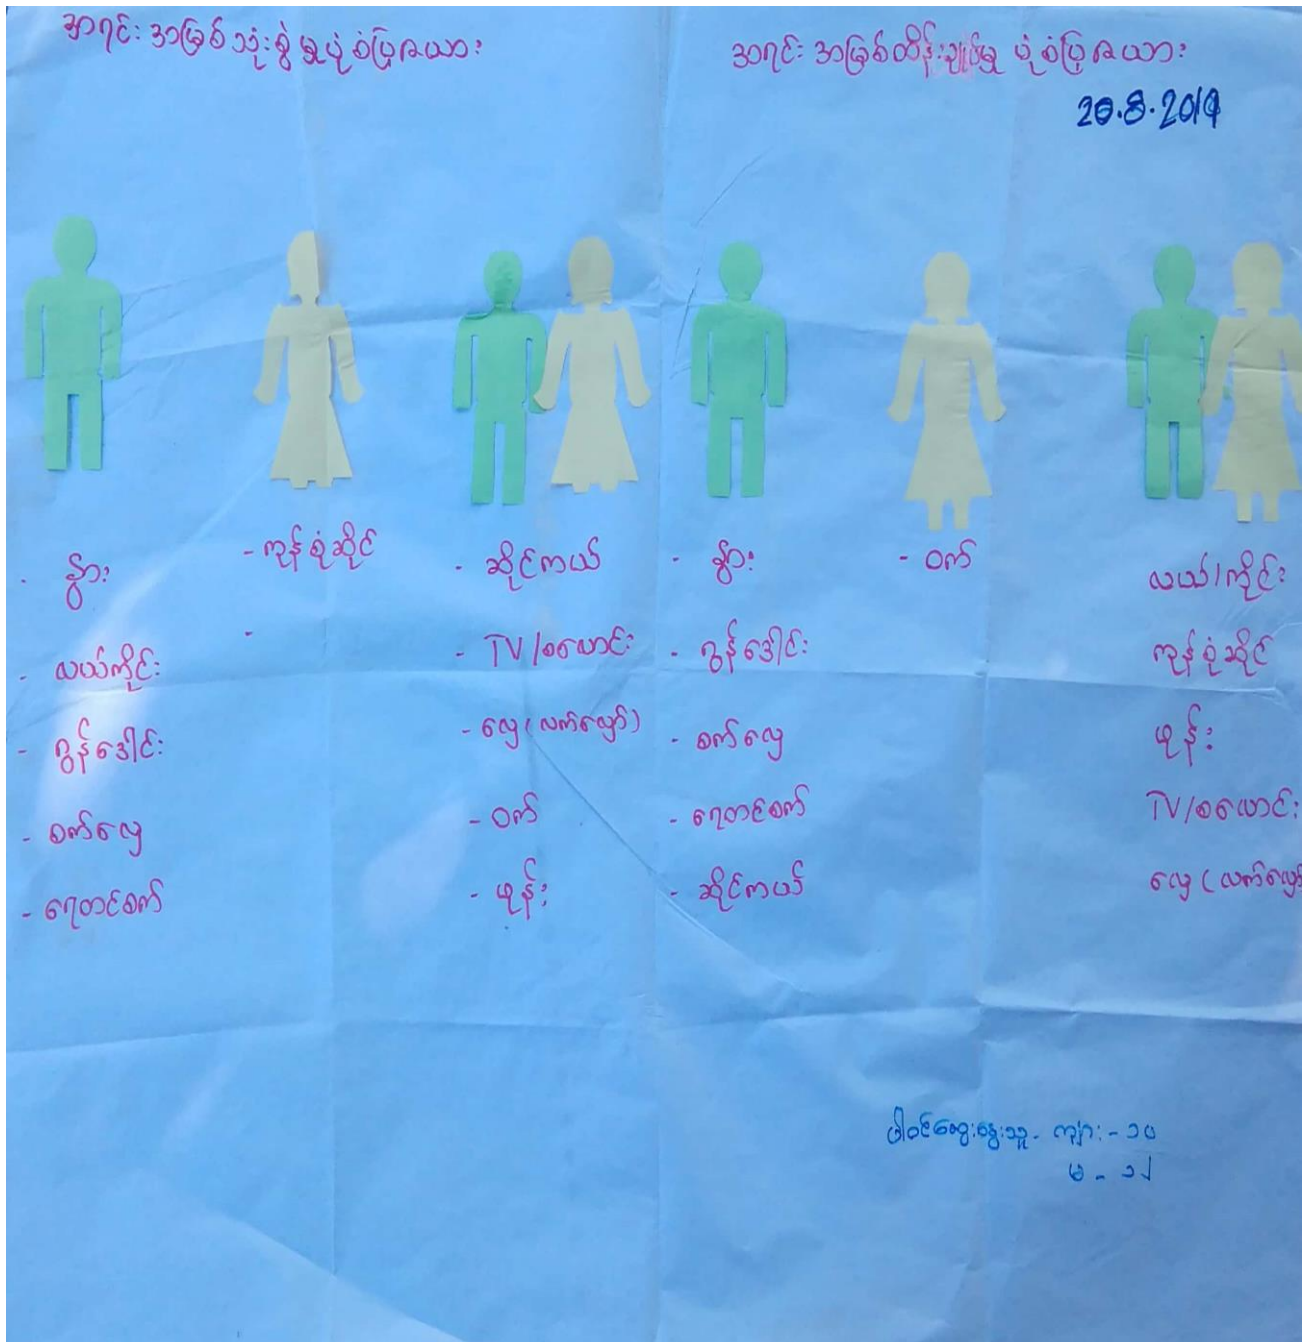 အရင်းအမြစ်သုံးစွဲမှုပုံစံပြဇယား
- နွား
- လယ်ကိုင်း
- ဂွန်ဒေါင်း
- စက်လှေ
- ရေတင်စက်
- ကုန်စုံဆိုင်
-
- ဆိုင်ကယ်
- TV/စလောင်း
- လှေ(လက်လှော်)
- ဝက်
- ဖုန်း
အရင်းအမြစ်ထိန်းချုပ်မှု ပုံစံပြဇယား
20.8.2019
- နွား
- ဂွန်ဒေါင်း
- စက်လှေ
- ရေတင်စက်
- ဆိုင်ကယ်
- ဝက်
လယ်/ကိုင်း
ကုန်စုံဆိုင်
ဖုန်း
TV/စလောင်း
လှေ (လက်လှော်
ပါဝင်ဆွေးနွေးသူ- ကျား - ၁၀
မ - ၁၂